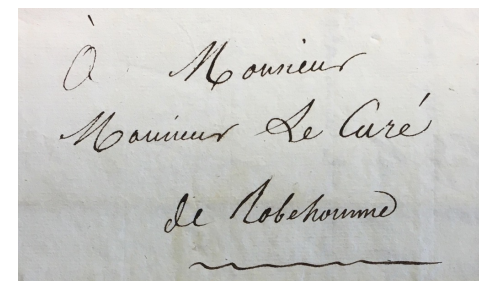 À Monsieur
Monsieur Le Curé
de Robehomme